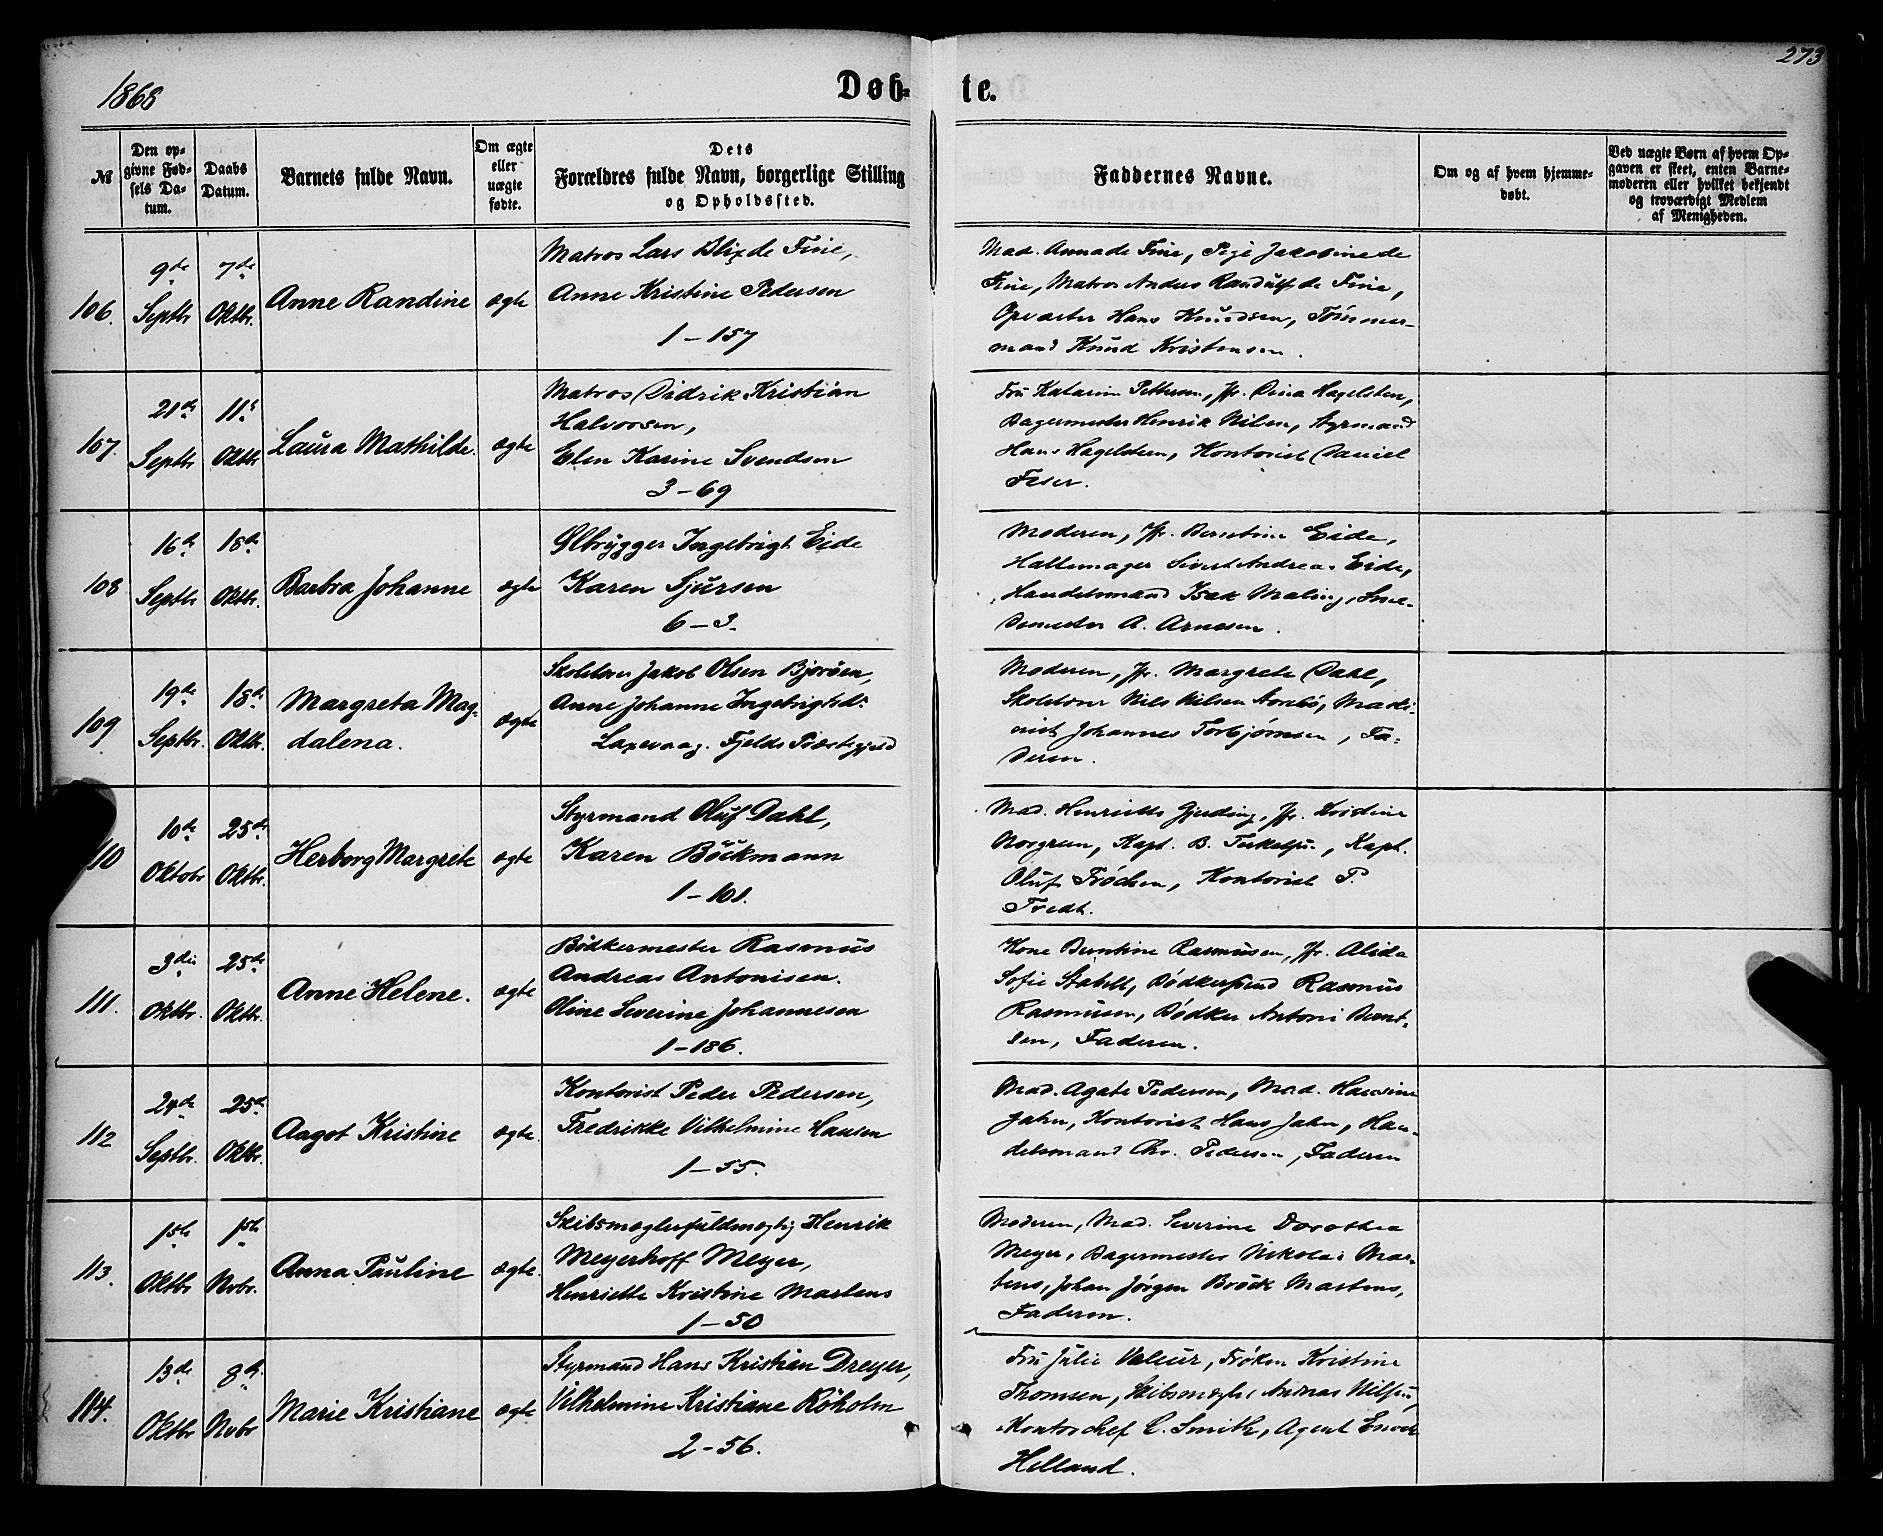 273
1868
Døb- te.
№
Den op-
givne Fød-
sels Da-
tum.
Daabs
Datum.
Barnets fulde Navn.
Om ægte
eller
uægte
fødte.
Dets
Forældres fulde Navn, borgerlige Stilling
og Opholdssted.
Faddernes Navne.
Om og af hvem hjemme-
døbt.
Ved uægte Børn af hvem Op-
gaven er skeet, enten Barne-
moderen eller hvilket bekjendt
og troværdigt Medlem
af Menigheden.
106.
9de
Septbr
7de
Oktbr.
Anne Randine
ægte
Matros Lars Blix de Fine,
Anne Kristine Pedersen
1-157
Mad. Anna de Fine, Pige Jakobine de
Fine, Matros Anders Randulf de Fine,
Opvarter Hans Knudsen, Tömmer-
mand Knud Kristensen.
107.
21de
Septbr
11te
Oktbr
Laura Mathilde.
ægte
Matros Didrik Kristian
Halvorsen,
Elen Karine Svendsen
3-69
Fru Katarine Pettersen, Jfr. Dina Hagelsten,
Bagermester Henrik Nilsen, Styrmand
Hans Hagelsteen, Kontorist Daniel
Feser.
108
16de
Septbr
18de
Oktbr.
Barbra Johanne
ægte
Ølbrygger Ingebrigt Eide
Karen Sjursen
6-3.
Moderen, Jfr. Berntine Eide,
Hattemager Sivert Andreas Eide,
Handelsmand Isak Maling, Sme-
demester A. Arnesen.
109
19de
Septbr.
18de
Oktbr.
Margreta Mag-
dalena.
ægte
Skolelærer Jakob Olsen Bjoröen,
Anne Johanne Ingebrigtsd.
Laxevaag. Fjelds Præstegjeld
Moderen, Jfr. Margrete Dahl,
Skolelærer Nils Nilsen Morebö, Maski-
nist Johannes Torbjørnsen, Fa-
deren.
110
10de
Oktobr
25de
Oktbr.
Herborg Margrete
ægte
Styrmand Oluf Dahl,
Karen Böckmann
1-101.
Mad. Henriette Gjerding, Jfr. Kristine
Norgreen, Kapt. B. Terkelsen, Kapt.
Oluf Tröchsen, Kontorist P.
Tredt.
111.
3die
Oktbr.
25de
Oktbr.
Anne Helene.
ægte
Bödkermester Rasmus
Andreas Antonisen.
Oline Severine Johannesen
1-186.
Kone Berntine Rasmusen, Jfr. Alida
Sofie Stabell, Bödkersvend Rasmus
Rasmusen, Bödker Antoni Bernt-
sen, Faderen.
112
24de
Septbr.
25de
Oktbr.
Aagot Kristine
ægte.
Kontorist Peder Pedersen,
Fredrikke Vilhelmine Hansen
1-55.
Mad. Agate Pedersen, Mad. Hansine
Jahn, Kontorist Hans Jahn, Han-
delsmand Chr. Pedersen, Faderen
113.
1ste
Oktbr
1ste
Nvbr.
Anna Pauline
ægte.
Skibsmæglerfuldmægtig Henrik
Meyerhoff Meyer,
Henriette Kristine Martens
1-50
Moderen, Mad. Severine Dorothea
Meyer, Bagermester Nikolai Mar-
tens, Johan Jörgen Brock Martens,
Faderen.
114.
13de
Oktbr
8de
Nvbr
Marie Kristiane
ægte
Styrmand Hans Kristian Dreyer,
Vilhelmine Kristiane Röholm
2-56.
Fru Julie Valeur, Frøken Kristine
Thomsen, Skibsmægler Andreas Nilsen,
Kontorchef C. Smith, Agent Enoch
Helland.